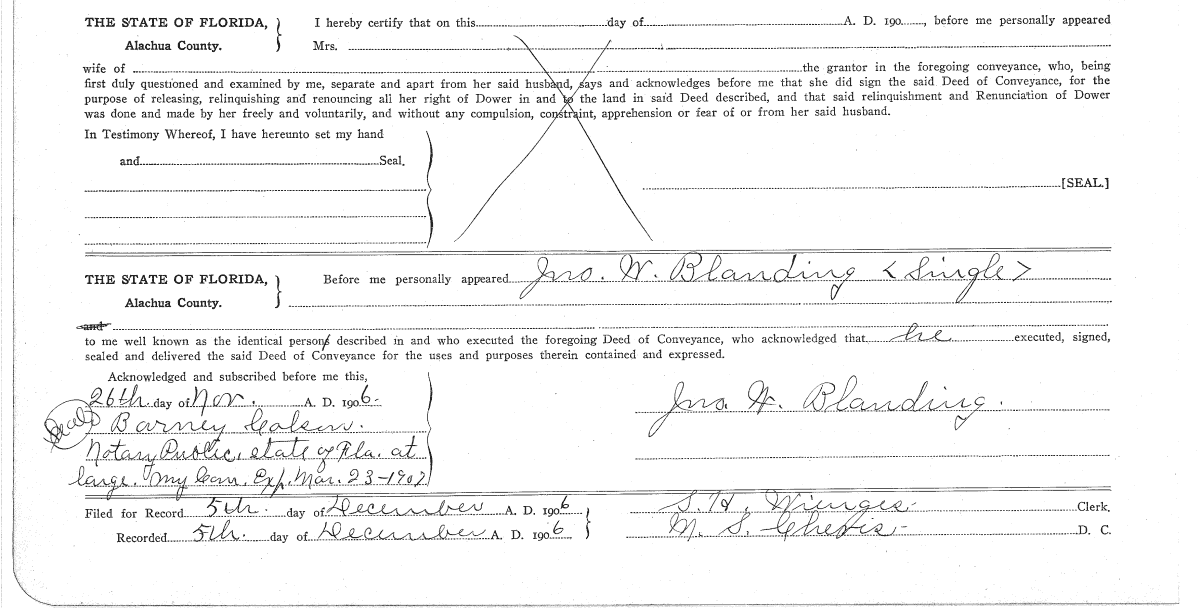 THE STATE OF FLORIDA, } I hereby certify that on this..........day of..........A. D. 190......, before me personally appeared
Alachua County. Mrs. ..........
wife of ..........the grantor in the foregoing conveyance, who, being
first duly questioned and examined by me, separate and apart from her said husband, says and acknowledges before me that she did sign the said Deed of Conveyance, for the
purpose of releasing, relinquishing and renouncing all her right of Dower in and to the land in said Deed described, and that said relinquishment and Renunciation of Dower
was done and made by her freely and voluntarily, and without any compulsion, constraint, apprehension or fear of or from her said husband.
In Testimony Whereof, I have hereunto set my hand
and..........Seal.
..........[SEAL.]
THE STATE OF FLORIDA, } Before me personally appeared Jno. W. Blanding <Single>
Alachua County.
and
to me well known as the identical person described in and who executed the foregoing Deed of Conveyance, who acknowledged that he executed, signed,
sealed and delivered the said Deed of Conveyance for the uses and purposes therein contained and expressed.
Acknowledged and subscribed before me this,
26th day of Nov. A. D. 1906.
Jno. W. Blanding.
(Seal) Barney Colson.
Notary Public, state of Fla. at
large. My Com. Exp. Mar. 23-1907
Filed for Record 5th. day of December A. D. 1906 } S. H. Wienges Clerk.
Recorded 5th. day of December A. D. 1906 M. S. Cheves D. C.